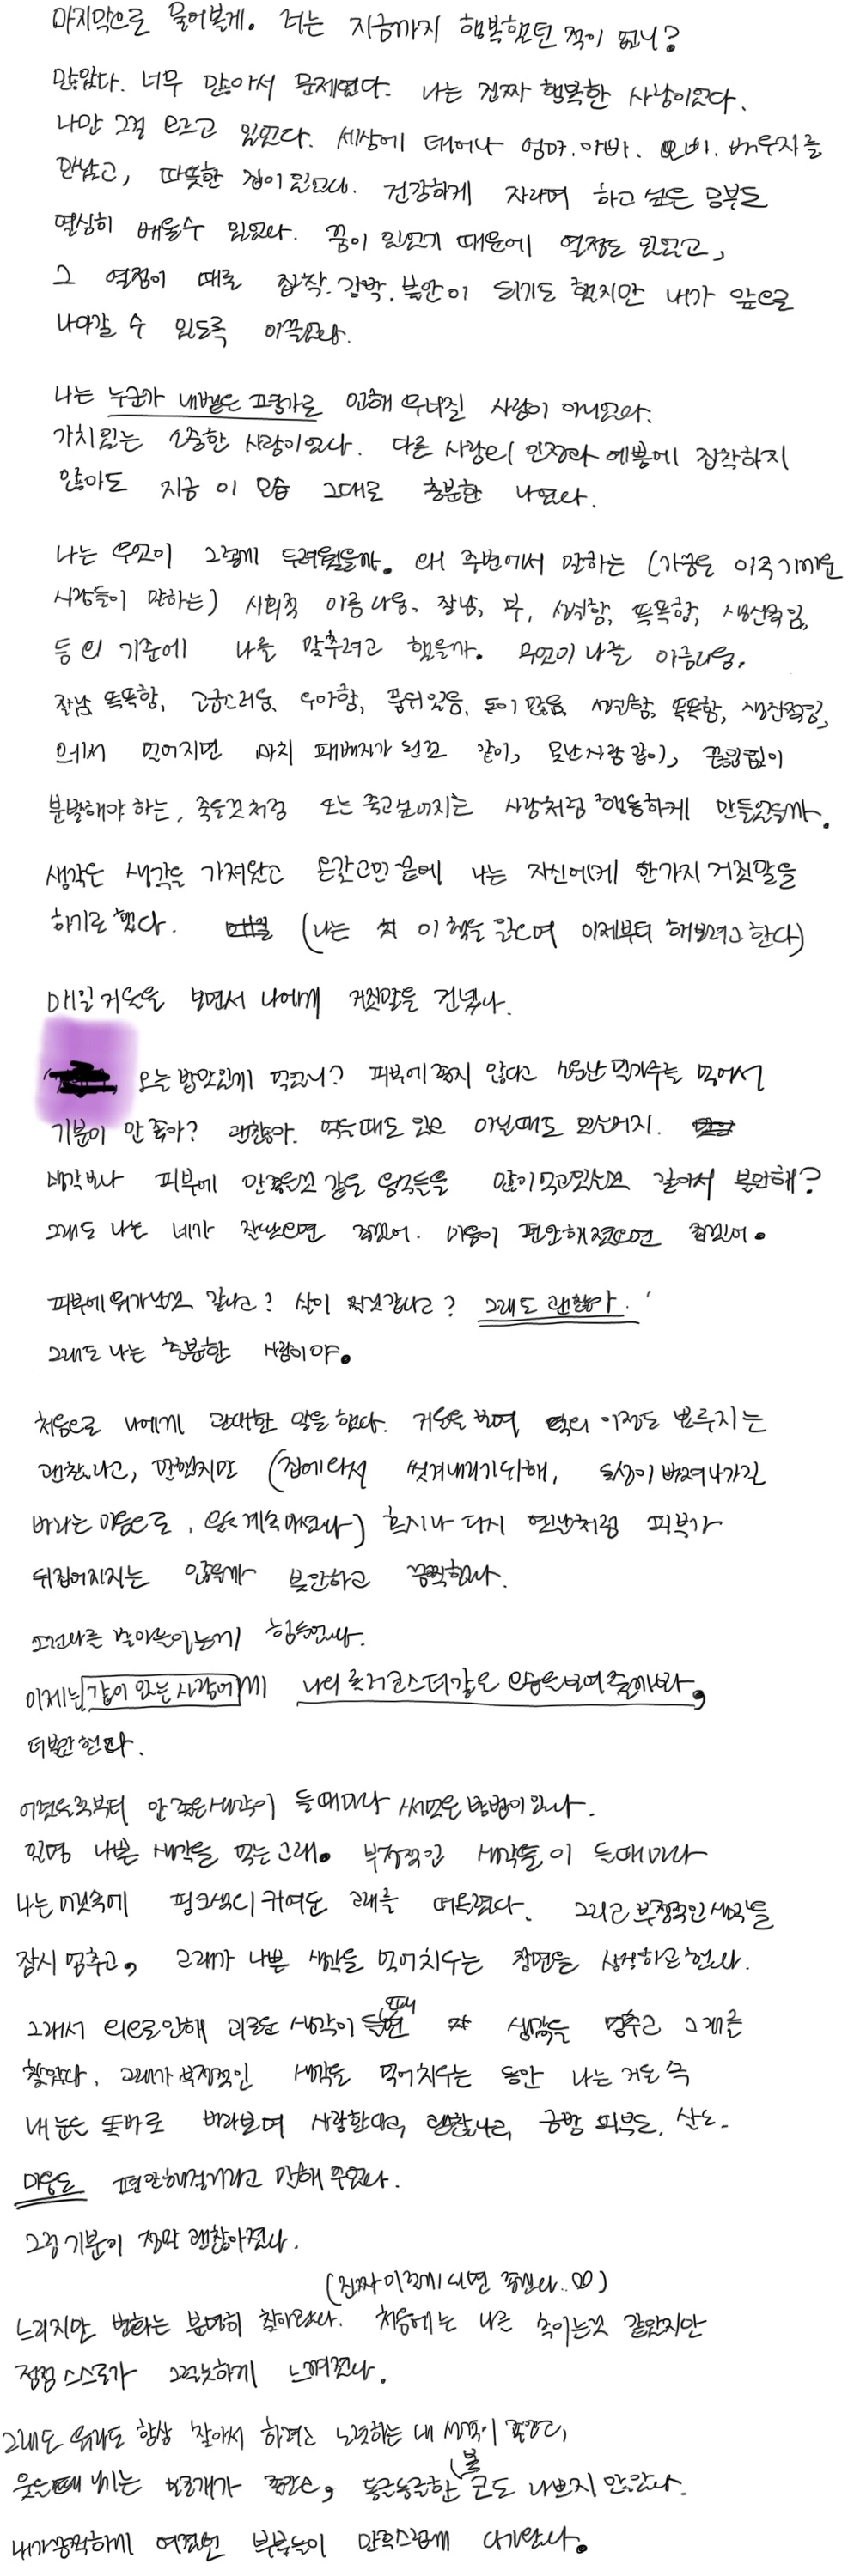 마지막으로 물어볼게. 너는 지금까지 행복했던 적이 없니?
많았다. 너무 많아서 문제였다. 나는 진짜 행복한 사람이었다.
나만 그걸 모르고 있었다. 세상에 태어나 엄마, 아빠, 오빠, 배우자를
만났고, 따뜻한 집이 있었다. 건강하게 자라며 하고 싶은 공부도
열심히 배울수 있었다. 꿈이 있었기 때문에 열정도 있었고,
그 열정이 때로 집착, 강박, 불안이 되기도 했지만 내가 앞으로
나아갈 수 있도록 이끌었다.
나는 누군가 내뱉은 평가로 인해 무너질 사람이 아니었다.
가치있는 소중한 사람이었다. 다른 사람의 인정과 예쁨에 집착하지
않아도 지금 이 모습 그대로 충분한 나였다.
나는 무엇이 그렇게 두려웠을까. 왜 주변에서 말하는 (가끔은 이주 가까운
사람들이 말하는) 사회적 아름다움, 잘남, 부, 성취함, 똑똑함, 생산적임,
등의 기준에 나를 맞추려고 했을까. 무엇이 나를 아름다움,
잘남, 똑똑함, 고급스러움, 우아함, 품위있음, 돈이 많음, 똑똑함, 생산적임,
에서 멀어지면 마치 패배자가 된것 같이, 못난사람 같이, 끊임없이
분발해야 하는, 죽을것처럼 또는 죽고싶어지는 사람처럼 행동하게 만들었을까.
생각은 생각을 가져왔고 온갖고민 끝에 나는 자신에게 한가지 거짓말을
하기로 했다. (나는 이 책을 읽으며 이제부터 해보려고 한다)
매일 거울을 보면서 나에게 거짓말을 건넸다.
오늘 밥 맛있게 먹었니? 피부에 좋지 않다고 소문난 밀가루를 먹어서
기분이 안 좋아? 괜찮아. 먹을때도 있고 아닐때도 있는거지.
생각보다 피부에 안좋은것 같은 음식들을 많이 먹고있는것 같아서 불안해?
그래도 나는 네가 잘났으면 좋겠어. 마음이 편안해졌으면 좋겠어.
피부에 뭐가 났것 같다고? 살이 찐것같다고? 그래도 괜찮아.
그래도 나는 충분한 사람이야.
처음으로 나에게 관대한 말을 했다. 거울을 보며 이정도 뾰루지는
괜찮다고, 말했지만 (집에 와서 씻겨내리기 위해, 독성이 빠져나가길
바라는 마음으로, 물을 계속 마셨다) 혹시나 다시 옛날처럼 피부가
뒤집어지지는 않을까 불안하고 끔찍했다.
그런나를 받아들이는게 힘들었다.
이제는 같이 있는 사람에게 나의 롤러코스터같은 모습을 보여줄까봐,
더 불안했다.
어렸을적부터 안 좋은생각이 들때마다 써먹은 방법이 있다.
일명 나쁜 생각을 먹는 고래. 부정적인 생각들이 들때마다
나는 머릿속에 핑크색의 귀여운 고래를 떠올렸다. 그리고 부정적인 생각을
잠시 멈추고, 고래가 나쁜 생각을 먹어치우는 장면을 상상하곤 했다.
그래서 외모로 인해 괴로운 생각이 들때 생각을 멈추고 고래를
찾았다. 고래가 부정적인 생각을 먹어치우는 동안 나는 거울 속
내 눈을 똑바로 바라보며 사랑한다고, 괜찮다고, 금방 피부도, 살도,
마음도 편안해질거라고 말해 주었다.
그럼 기분이 정말 괜찮아졌다.
(진짜 이렇게 되면 좋겠다..)
느리지만 변화는 분명히 찾아왔다. 처음에는 나를 속이는것 같았지만
점점 스스로가 그럴듯하게 느껴졌다.
그래도 뭐라도 항상 찾아서 하려고 노력하는 내 성격이 좋았고,
웃을때 보이는 보조개가 좋았고, 동글동글한 볼 코도 나쁘지 않았다.
내가 끔찍하게 여겼던 부분들이 만족스럽게 다가왔다.